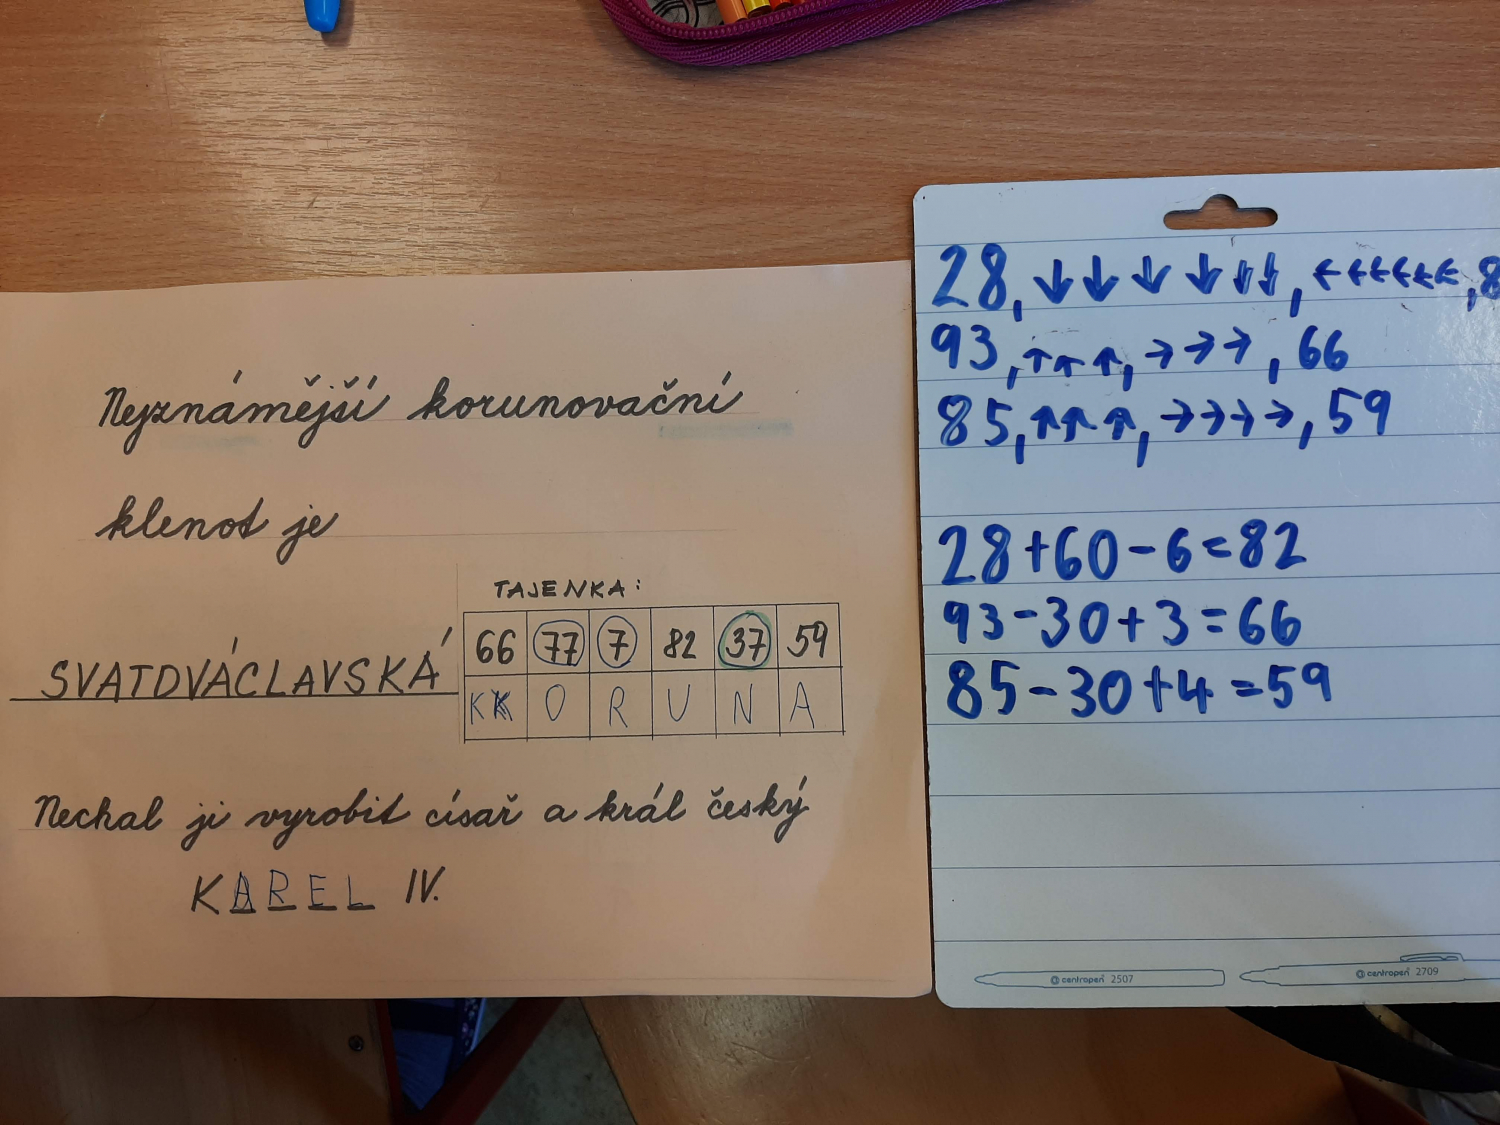 Nejznámější korunovační
klenot je
TAJENKA:
66 77 7 82 37 59
SVATOVÁCLAVSKÁ
K O R U N A
Nechal ji vyrobit císař a král český
KAREL IV.
28,↓↓↓↓↓↓,←←←←←←,8
93,↑↑↑,→→→,66
85,↑↑↑,→→→→,59
28+60-6=82
93-30+3=66
85-30+4=59
@ centropen 2507
@ centropen 2709